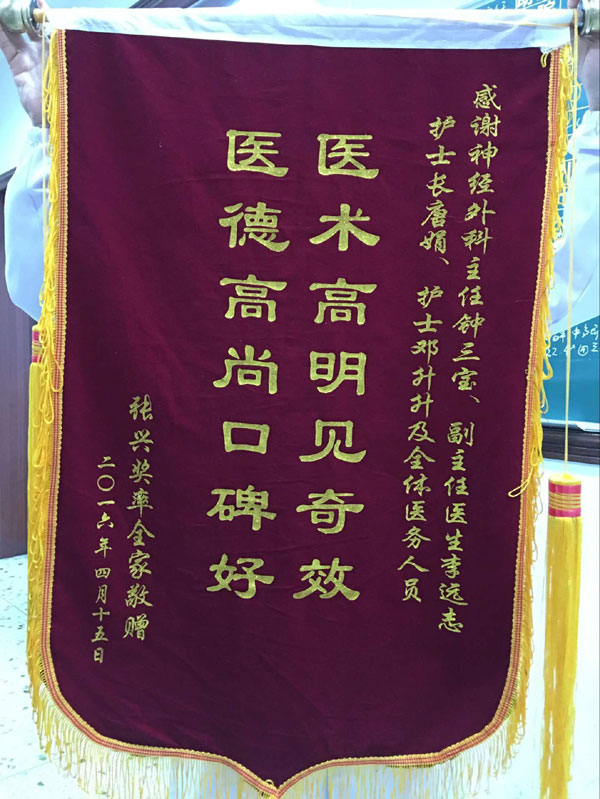 感谢神经外科主任钟三宝、副主任医生李远志
护士长唐娟、护士邓升升及全体医务人员
医术高明见奇效
医德高尚口碑好
张兴奖率全家敬赠
二〇一六年四月十五日